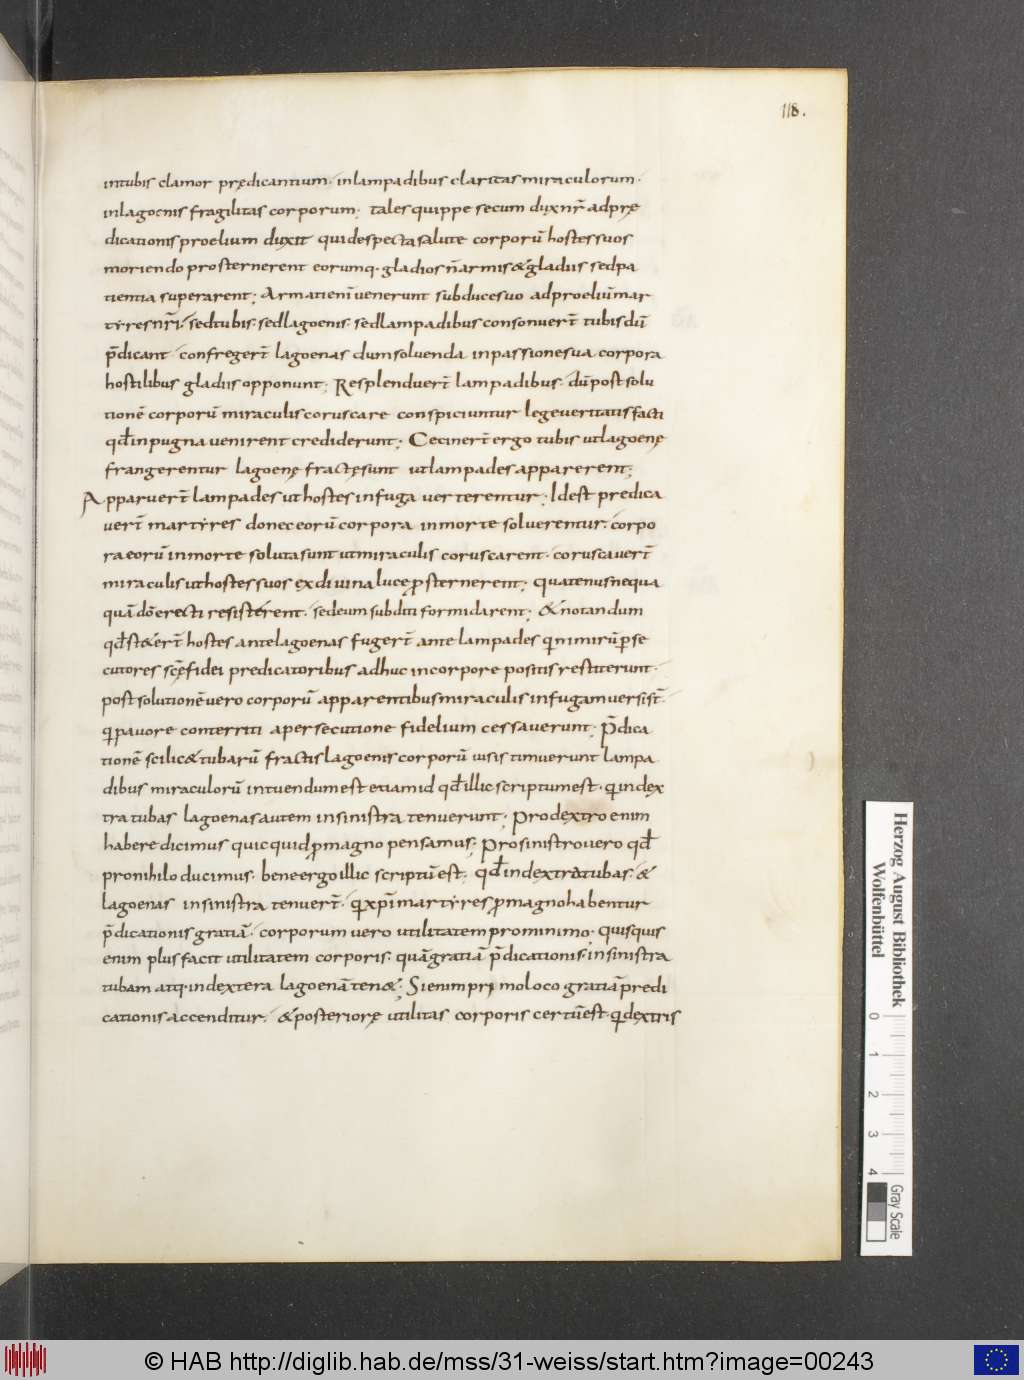 118.
intubis clamor prędicantium· inlampadibus claritas miraculorum·
inlagoenis fragilitas corporum; tales quippe secum dux nr̃ adprę
dicationis proelium duxit qui despecta salute corporũ hostes suos
moriendo prosternerent eorumq· gladios ñ armis & gladiis sed pa
tientia superarent; Armati eni uenerunt sub duce suo ad proeliũ mar
tyres nr̃i· sed tubis· sed lagoenis· sed lampadibus consonuer̃t tubis dũ
p̃dicant confreger̃t lagoenas dum soluenda in passione sua corpora
hostilibus gladiis opponunt; Resplenduer̃t lampadibus· dũ post solu
tionẽ corporũ miraculis coruscare conspiciuntur lege ueritatis facti
qđ in pugna uenirent crediderunt; Ceciner̃t ergo tubis ut lagoenę
frangerentur lagoenę fractę sunt ut lampades apparerent;
Apparuer̃t lampades ut hostes in fuga uerterentur; Idest predica
uer̃t martyres donec eorũ corpora in morte soluerentur· corpo
ra eorũ in morte soluta sunt ut miraculis coruscarent· coruscauer̃t
miraculis ut hostes suos ex diuina luce ꝓsternerent; quatenus nequa
quã dõ erecti resisterent· sed eum subditi formidarent; & notandum
qđ st&er̃t hostes ante lagoenas fuger̃t ante lampades qi nimirũ ꝑse
cutores scę̃ fidei predicatoribus adhuc in corpore positis restiterunt·
post solutionẽ uero corporũ apparentibus miraculis in fugam uersi st̃·
qi pauore conterriti a persecutione fidelium cessauerunt; P̃dica
tionẽ scilic& tubarũ fractis lagoenis corporũ uisis timuerunt lampa
dibus miraculorũ intuendum est etiam id qđ illic scriptum est· qi in dex
tra tubas lagoenas autem in sinistra tenuerunt; Pro dextro enim
habere dicimus quicquid ꝓ magno pensamus; Pro sinistro uero qđ
pro nihilo ducimus· bene ergo illic scriptũ est; qđ in dextra tubas· &
lagoenas in sinistra tenuer̃t· qi xp̃i martyres ꝓ magno habentur
p̃dicationis gratiã· corporum uero utilitatem pro minimo; quisquis
enim plus facit utilitatem corporis· quã gratiã p̃dicationis· in sinistra
tubam atq· in dextera lagoenã ten&; Si enim pri mo loco gratiã predi
cationis accenditur· & posteriorę utilitas corporis certũ est· qi dextris
Herzog August Bibliothek
Wolfenbüttel
0 1 2 3 4
Gray Scale
© HAB http://diglib.hab.de/mss/31-weiss/start.htm?image=00243